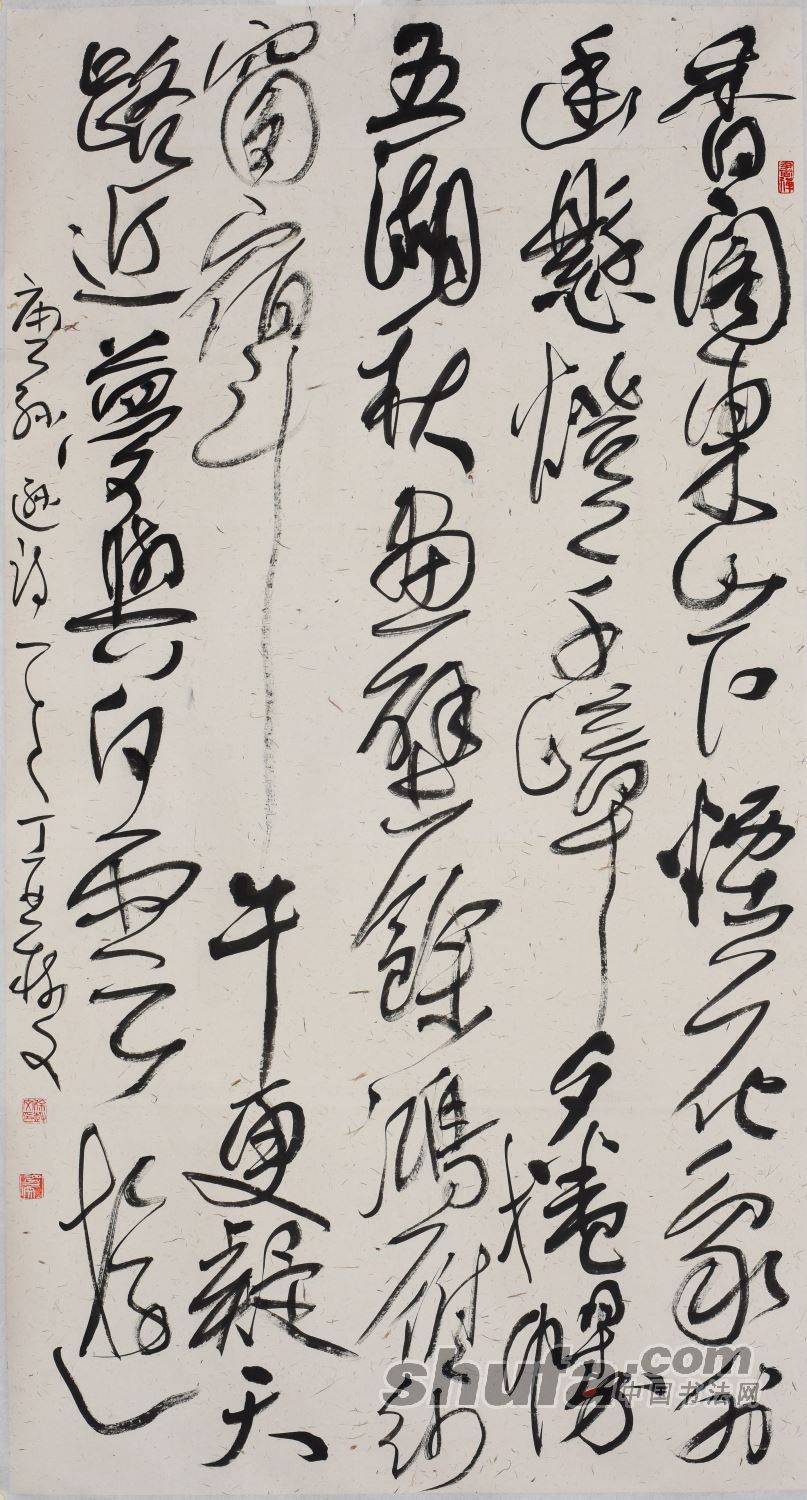 香閣東山下煙花象外
幽懸燈千嶂夕捲幔
五湖秋畫壁餘鴻雁紗
窗宿斗牛更疑天
路近夢與白雲遊
唐孫逖詩一首丁丑
shufa.com
中国书法网